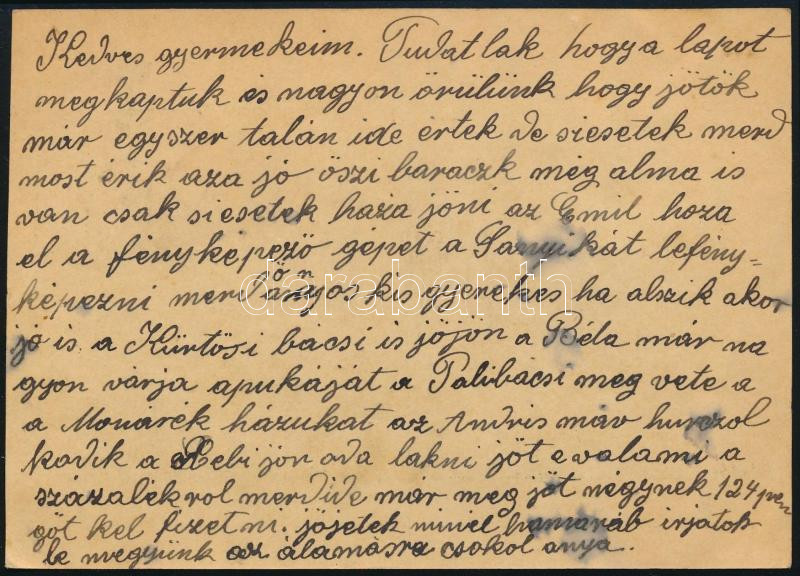 Kedves gyermekeim. Tudatlak hogy a lapot
megkaptuk és nagyon örülünk hogy jötök
már egyszer talán ide értek de siesetek merd
most érik aza jó öszi baraczk még alma is
van csak siesetek haza jöni az Emil hoza
el a fényképező gépet a Sanyikát lefény=
képezni merd arányos kis gyerekes ha alszik akor
jó is. a Kürtösi bácsi is jöjön a Béla már na
gyon várja apukáját a Palibácsi meg vete a
a Monárék házukat az Andris máv hurczol
kodik a Rebi jön oda lakni jöt e valami a
százalékrol merd ide már meg jöt négynek 124 pen
göt kel fizetni. jöjetek minél hamaráb irjatok
le megyünk az álamásra csokol anya.
darabanth